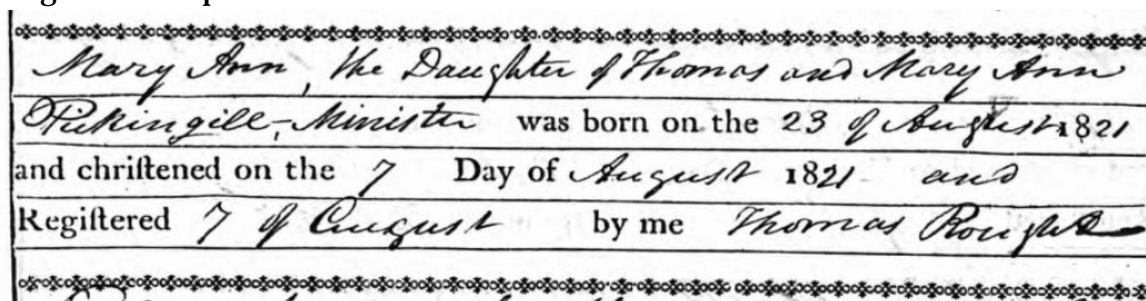 Mary Ann, the Daughter of Thomas and Mary Ann
Pickingill, Minister was born on the 23 of August 1821
and chriſtened on the 7 Day of August 1821 and
Regiſtered 7 of August by me Thomas